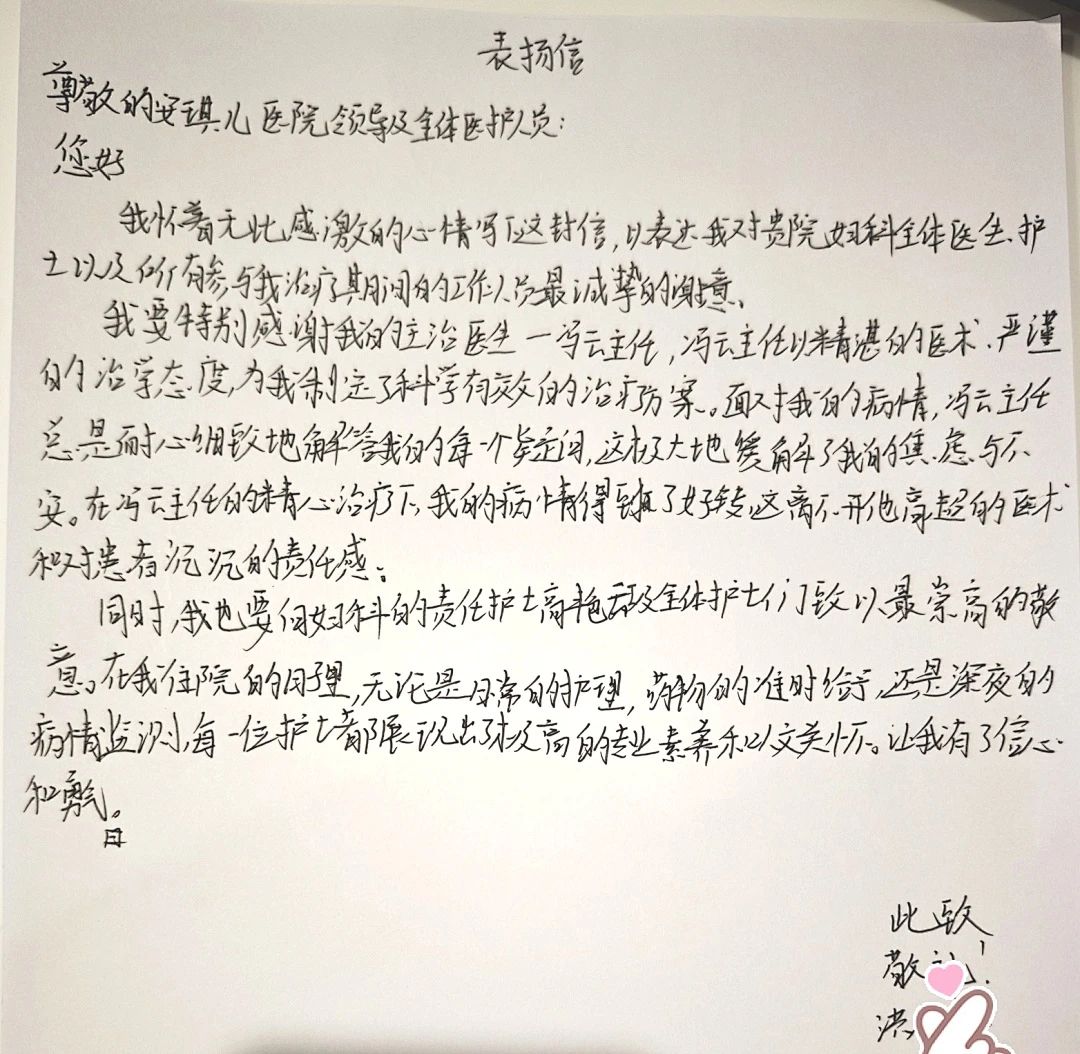 表扬信
尊敬的安琪儿医院领导及全体医护人员：
您好
我怀着无比感激的心情写下这封信，以表达我对贵院妇科全体医生、护
士以及所有参与我治疗期间的工作人员最诚挚的谢意、
我要特别感谢我的主治医生一冯云主任，冯云主任以精湛的医术、严谨
的治学态度，为我制定了科学有效的治疗方案。面对我的病情，冯云主任
总是耐心细致地解答我的每一个疑问，这极大地缓解了我的焦虑与不
安。在冯云主任的精心治疗下，我的病情得到了好转，这离不开他高超的医术
和对患者沉沉的责任感。
同时，我也要向妇科的责任护士高艳及全体护士们致以最崇高的敬
意。在我住院的日子里，无论是日常的护理，药物的准时给予，还是深夜的
病情监测，每一位护士都展现出了极高的专业素养和人文关怀。让我有了信心
和勇气。
此致
敬礼！
洪